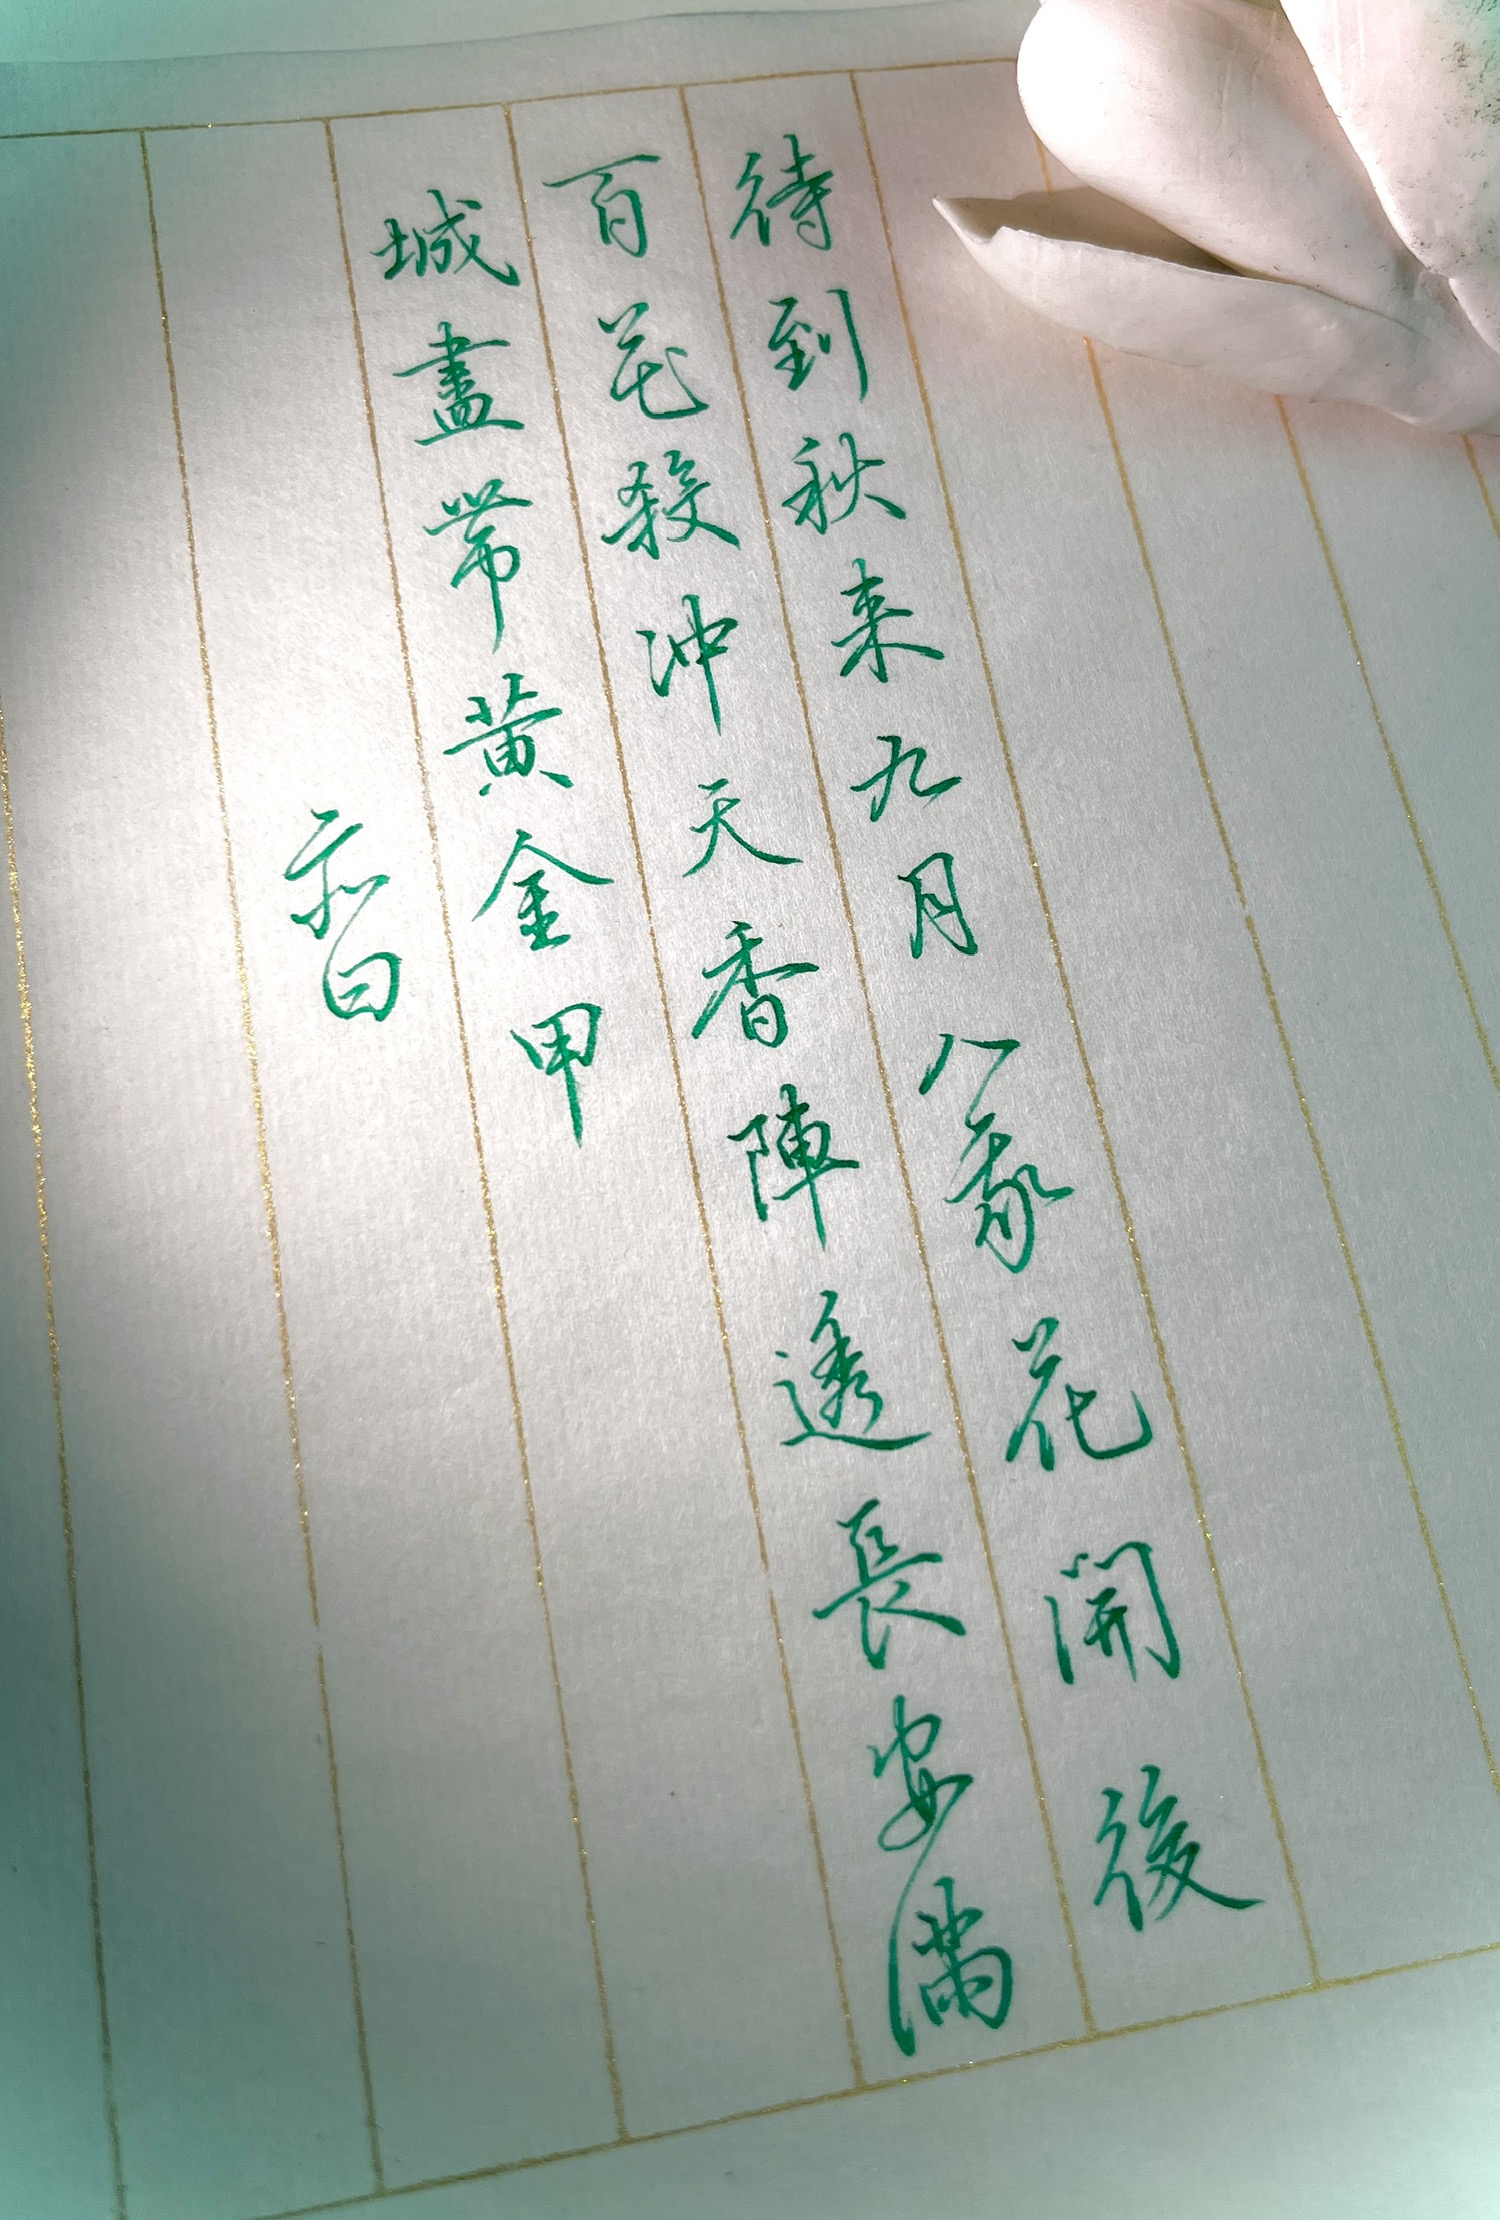 待到秋来九月八我花開後
百花殺冲天香陣透長安滿
城盡帶黄金甲